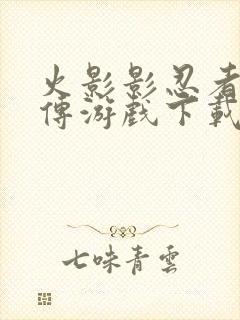 火影影忍者
傳游戲下載
七味青雲